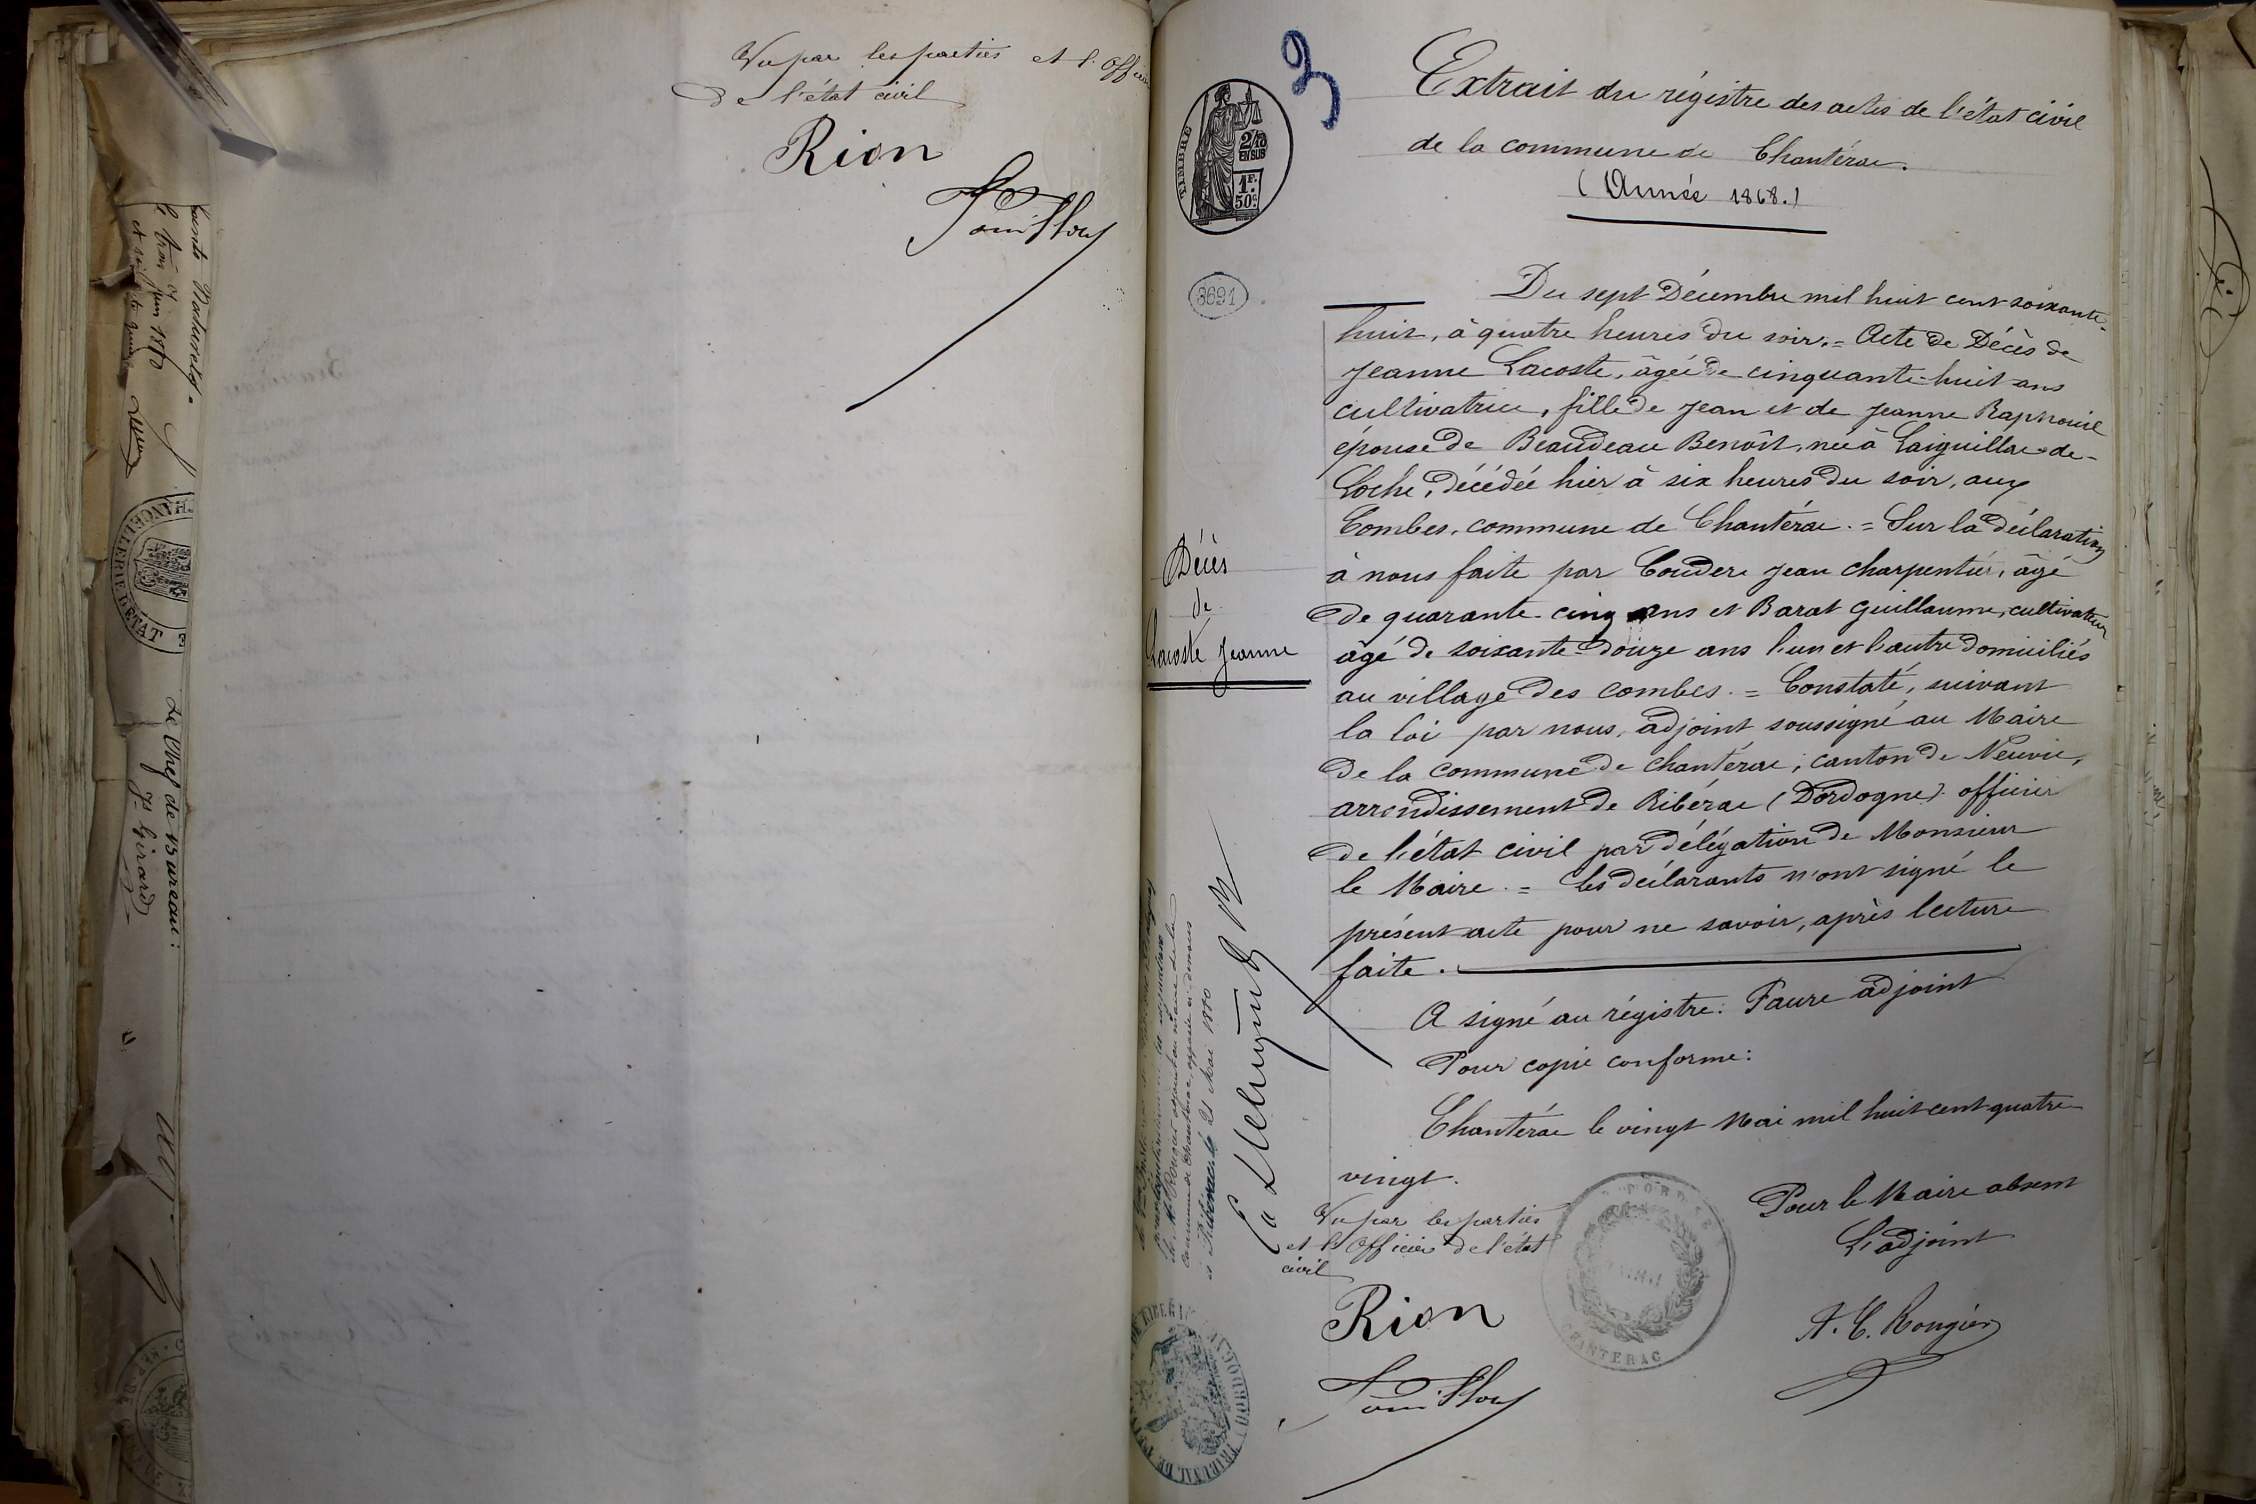 Vu par les parties et l'Officier
de l'état civil
Rion
le trois juin 1880
CHANCELLERIE D'ETAT
Le Chef de Bureau:
Jn Girard
3
TIMBRE
2/10
EN SUS
1F.
50c.
8691
Extrait du régistre des actes de l'état civil
de la commune de Chantérac.
(Année 1868.)
Du sept Décembre mil huit cent soixante-
huit, à quatre heures du soir. = Acte de Décès de
Jeanne Lacoste, âgée de cinquante-huit ans
cultivatrice, fille de Jean et de Jeanne Raphouil
épouse de Beaudeau Benoît, née à Laiguillac-de-
Loche, décédée hier à six heures du soir, aux
Combes, commune de Chantérac. = Sur la déclaration
à nous faite par Couderc Jean charpentier, âgé
de quarante-cinq ans et Barat Guillaume, cultivateur
âgé de soixante-douze ans l'un et l'autre domiciliés
au village des combes. = Constaté, suivant
la loi par nous, adjoint soussigné au Maire
de la commune de Chantérac, canton de Neuvic,
arrondissement de Ribérac (Dordogne) officier
de l'état civil par délégation de Monsieur
le Maire. = les déclarants n'ont signé le
présent acte pour ne savoir, après lecture
faite.
Décès
de
Lacoste Jeanne
A signé au régistre: Faure adjoint
Pour copie conforme:
Chantérac le vingt Mai mil huit cent quatre
vingt.
Pour le Maire absent
L'adjoint
A. C. Rougier
Vu par les parties
et l'Officier de l'état
civil
Rion
CHANTERAC
de Mr Rougier adjoint au maire de la
commune de Chantérac, apposée ci-dessous
à Ribérac le 21 Mai 1880